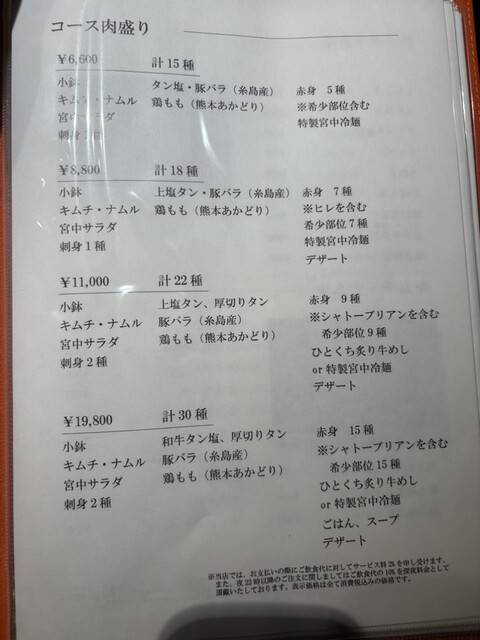 コース肉盛り
￥6,600 計15種
小鉢 タン塩・豚バラ（糸島産） 赤身 5種
キムチ・ナムル 鶏もも（熊本あかどり） ※希少部位含む
宮中サラダ 特製宮中冷麺
刺身 種
￥8,800 計18種
小鉢 上塩タン・豚バラ（糸島産） 赤身 7種
キムチ・ナムル 鶏もも（熊本あかどり） ※ヒレを含む
宮中サラダ 希少部位7種
刺身1種 特製宮中冷麺
デザート
￥11,000 計22種
小鉢 上塩タン、厚切りタン 赤身 9種
キムチ・ナムル 豚バラ（糸島産） ※シャトーブリアンを含む
宮中サラダ 鶏もも（熊本あかどり） 希少部位9種
刺身2種 ひとくち炙り牛めし
or 特製宮中冷麺
デザート
￥19,800 計30種
小鉢 和牛タン塩、厚切りタン 赤身 15種
キムチ・ナムル 豚バラ（糸島産） ※シャトーブリアンを含む
宮中サラダ 鶏もも（熊本あかどり） 希少部位15種
刺身2種 ひとくち炙り牛めし
or 特製宮中冷麺
ごはん、スープ
デザート
※当店では、お支払いの際にご飲食代に対してサービス料2%を申し受けます。
また、夜22時以降のご注文に関しましてはご飲食代の10%を深夜料金として
頂戴いたしております。表示価格は全て消費税込みの価格です。